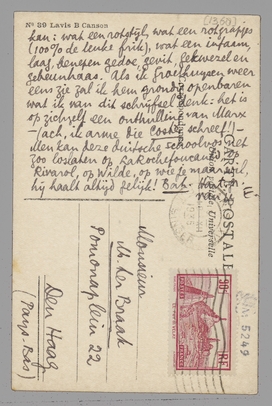 (1350)
No 89 Lavis B Canson
kan: wat een rotstijl, wat een rotgrapjes
(100% de leuke frik), wat een infaam,
laag, gedoe, gekwezel en
Als ik Groethuysen weer
eens zie zal ik hem grondig openbaren
wat ik van dit schrijfsel denk: het is
op zichzelf een onthullen van Marx
—(ach, ik arme die Coster schreef!)—
Men kan deze duitsche schoolvos niet
zoo loslaten op Larochefoucauld, op
Rivarol, op Wilde, op wie je maar wil,
hij haalt altijd gelijk! Bah.
E.
CARTE POSTALE
Monsieur
M. ter Braak
Pomonaplein 22
Den Haag
(Pays-Bas)
RF
5249